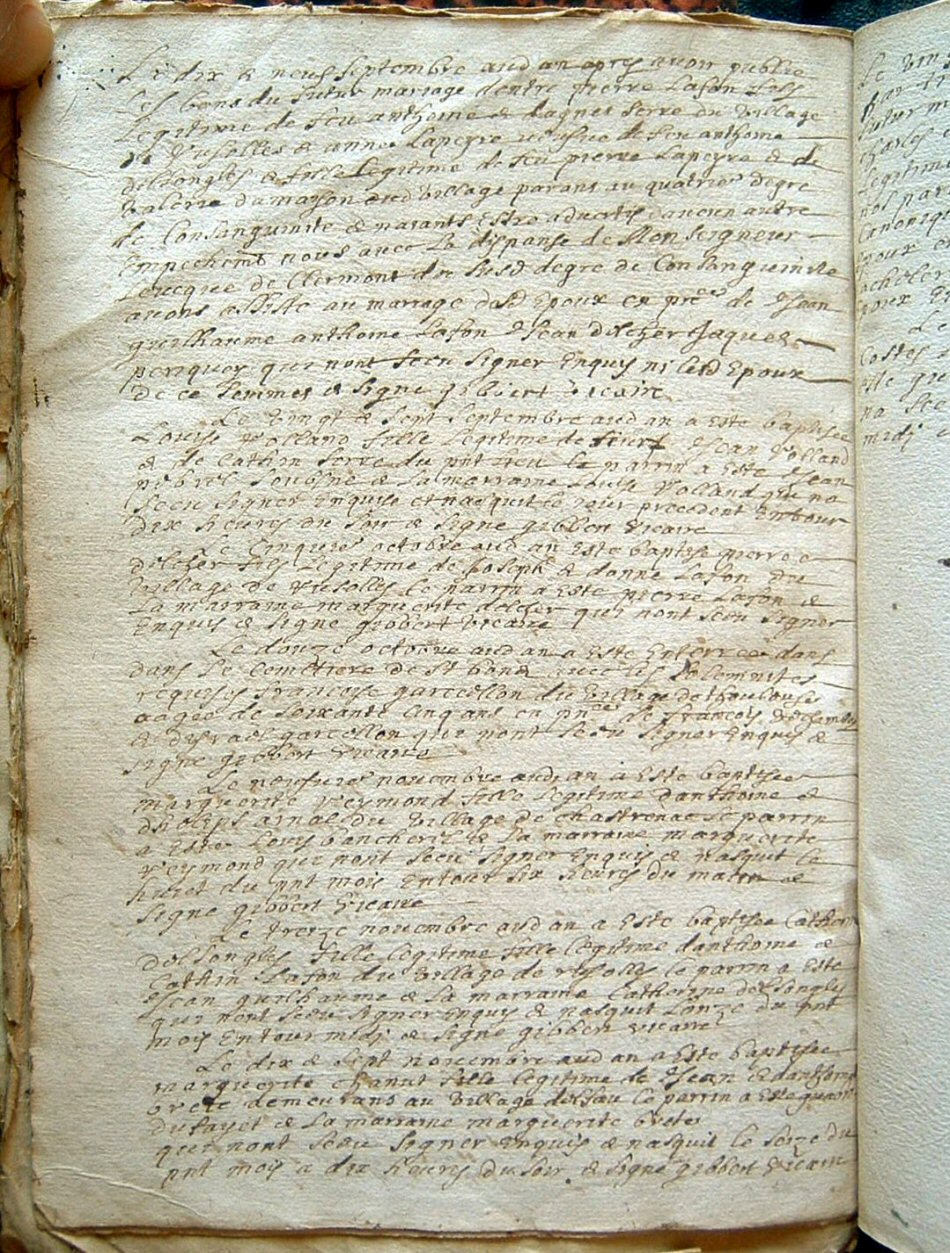 Le dix & neuf septembre aud an apres avoir publie
les bans du futur mariage dentre pierre Lafon fils
legitime de feu anthoine & dagnes serre du village
de Vusolles & anne Lapeyre veufve de feu anthoine
delsongles & fille legitime de feu pierre Lapeyre & de
valerie dumayson dud village parans au quatrie degre
de Consanguinite & nayants estre aducun autre
Empechemt nous avec La dispanse de Monseigneur
Levecque de Clermont du susd degre de Consanguinite
avons assiste au mariage desd Epoux en prnce de Jean
guilhaume anthoine Lafon Jean delcher Jaques
periquoy qui nont sceu signer Enquis ni lesd Epoux
de ce sommes & signe gibbert vicaire
Le vingt & sept septembre aud an a este baptisee
Louise Volland fille legitime de Jean Volland
& de Cathin serre du pnt lieu le parrin a este Jean
& La marraine Louise Volland qui na
sceu signer Enquise et nacquit le jour precedent Entour
dix heures du soir & signe gibbert vicaire
Le Cinquie octobre aud an Este baptise pierre
delcher fils legitime de Joseph & donne Lafon du
village de Vusolles le parrin a este pierre Lafon &
La marraine marguerite delcher qui nont sceu signer
Enquis & signe gibbert vicaire
Le douze octobre aud an a este Enterree dans
dans le cemetiere de st bonet avec les solemnites
requises francoise garcellon du village de thoulouse
aagee de soixante cinq ans en pnce de francois
& disrael garcellon qui nont sceu signer Enquis &
signe gibbert vicaire
Le neufvie novembre aud an a Este baptisee
marguerite veymond fille legitime danthoine &
dhelips arnal du village de chastrenac le parrin
a este Louis bancherel & La marraine marguerite
veymond qui nont sceu signer Enquis & nasquit le
huict du pnt mois Entour six heures du matin &
signe gibbert vicaire
Le treize novembre aud an a Este baptisee Catherine
delsongles fille legitime fille legitime danthoine &
Cathin Lafon du village de Vusolles le parrin a este
Jean guilhaume & La marraine Catherine delsongles
qui nont sceu signer Enquis & nasquit Lonze du pnt
mois Entour midj & signe gibbert vicaire
Le dix & sept novembre aud an a Este baptisee
marguerite chanut fille legitime de Jean & danthonia
brete demeurans au village le parrin a este
dufayet & La marraine marguerite brete
qui nont sceu signer Enquis & nasquit le seize du
pnt mois a dix heures du soir & signe gibbert vicaire